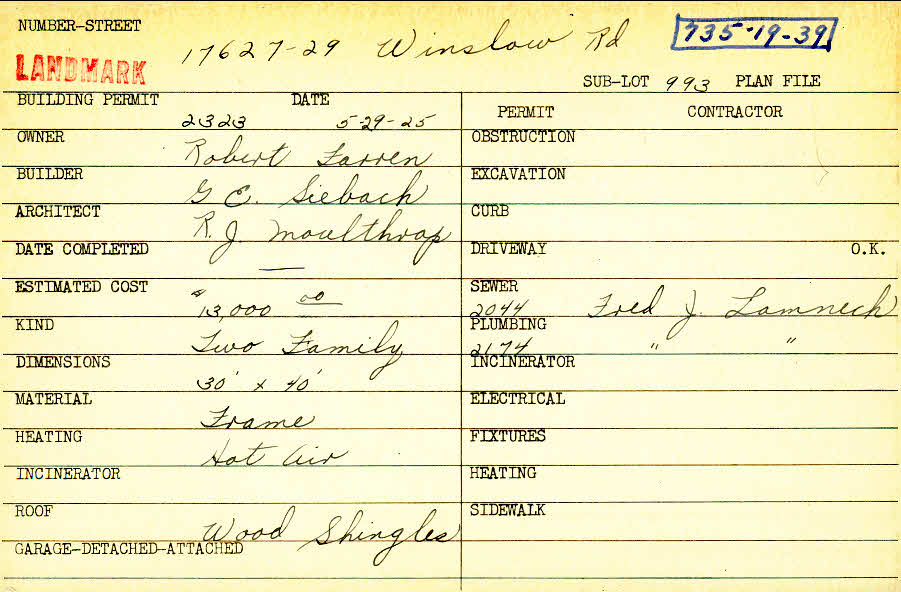 NUMBER-STREET 17627-29 Winslow Rd 735-19-39
LANDMARK
SUB-LOT 993 PLAN FILE
BUILDING PERMIT 2323 DATE 5-29-25
OWNER Robert Farren
BUILDER G E. Siebach
ARCHITECT R. J. Moulthrop
DATE COMPLETED —
ESTIMATED COST $13,000 00
KIND Two Family
DIMENSIONS 30' x 40'
MATERIAL Frame
HEATING Hot Air
INCINERATOR
ROOF Wood Shingles
GARAGE-DETACHED-ATTACHED
PERMIT CONTRACTOR
OBSTRUCTION
EXCAVATION
CURB
DRIVEWAY O.K.
SEWER 2044 Fred J. Lamneck
PLUMBING 2174 " "
INCINERATOR
ELECTRICAL
FIXTURES
HEATING
SIDEWALK